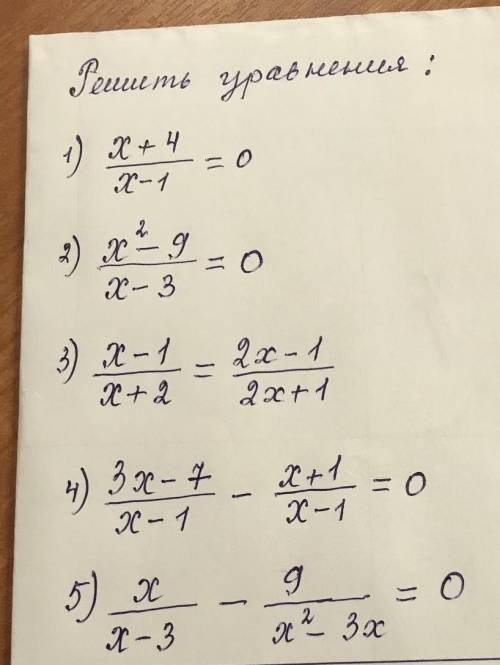 Решить уравнения:
1) (x+4)/(x-1) = 0
2) (x²-9)/(x-3) = 0
3) (x-1)/(x+2) = (2x-1)/(2x+1)
4) (3x-7)/(x-1) - (x+1)/(x-1) = 0
5) x/(x-3) - 9/(x²-3x) = 0